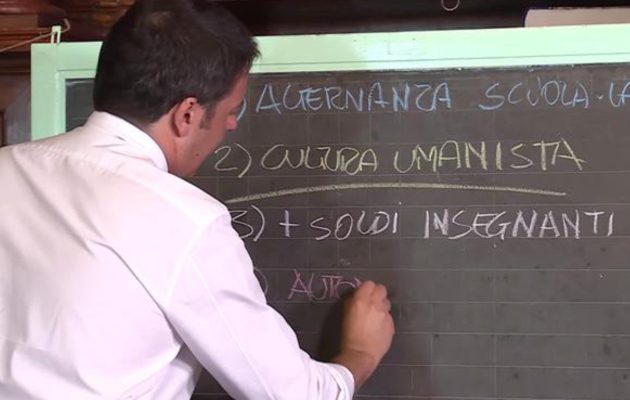 ) ALTERNANZA SCUOLA-LA
2) CULTURA UMANISTA
3) + SOLDI INSEGNANTI
) AUTO